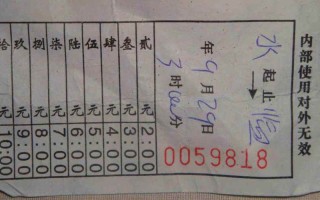 内部使用对外无效
水 起止
年 9 月 29 日
3 时 00 分
0059818
贰 元 2:00
叁 元 3:00
肆 元 4:00
伍 元 5:00
陆 元 6:00
柒 元 7:00
捌 元 8:00
玖 元 9:00
拾 元 10:00